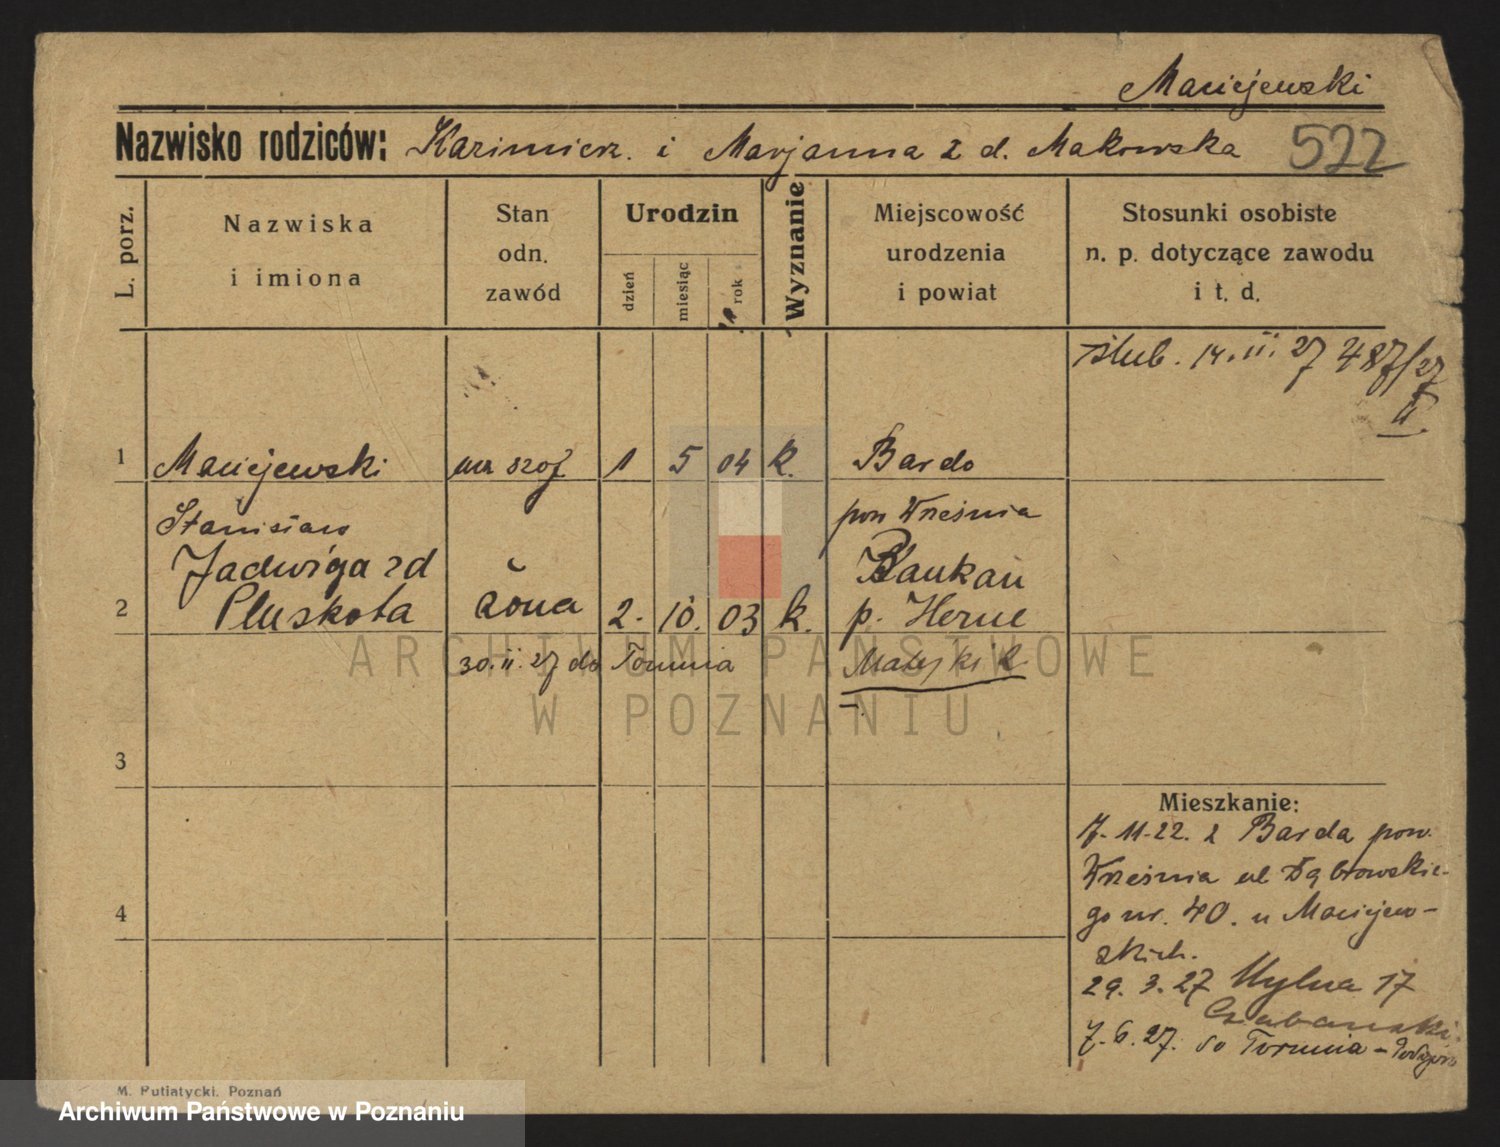 Maciejewski
Nazwisko rodziców: Kazimierz. i Marjanna z d. Makowska 522
L. porz.
Nazwiska
i imiona
Stan
odn.
zawód
Urodzin
dzień
miesiąc
rok
Wyznanie
Miejscowość
urodzenia
i powiat
Stosunki osobiste
n. p. dotyczące zawodu
i t. d.
ślub. 14. II. 27 487/27
II.
1 Maciejewski szof 1 5 04 k. Bardo
Stanisław pow Września
Jadwiga zd Baukau
2 Pluskota żona 2. 10. 03 k. p. Herne
30. II. 27 do Torunia
3
4
Mieszkanie:
7. 11. 22. z Barda pow.
Września ul Dąbrowskie-
go nr. 40. u Maciejew-
skich.
29. 3. 27 Mylna 17
7. 6. 27. do Torunia -
M. Putiatycki. Poznań
ARCHIWUM PAŃSTWOWE
W POZNANIU
Archiwum Państwowe w Poznaniu